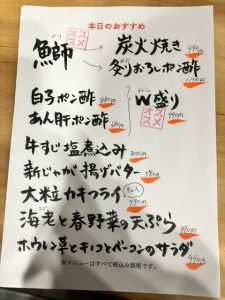 本日のおすすめ
鰤 オススメ 炭火焼き 990円
炙りおろしポン酢 1100円
白子ポン酢 880円
あん肝ポン酢
W盛り オススメ 990円
牛すじ塩煮込み 800円
新じゃが揚げバター 580円
大粒カキフライ 790円
海老と春野菜の天ぷら 990円
ホウレン草とキノコとベーコンのサラダ 990円
※メニューはすべて税込み価格です。